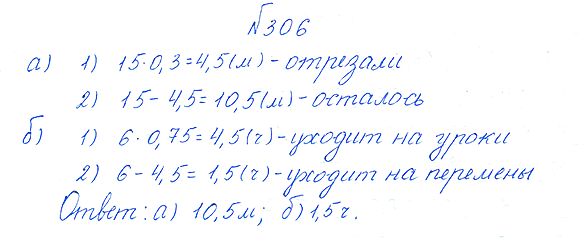 №306
а) 1) 15·0,3=4,5(м)-отрезали
2) 15-4,5=10,5(м)-осталось
б) 1) 6·0,75=4,5(ч)-уходит на уроки
2) 6-4,5=1,5(ч)-уходит на перемены
Ответ: а) 10,5м; б)1,5ч.